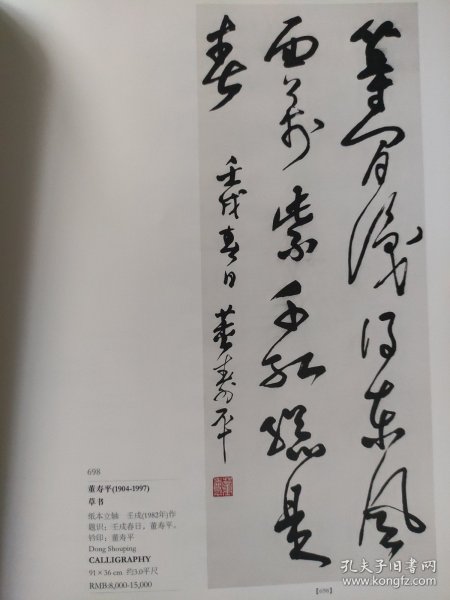 等閒識得東風
面萬紫千紅總是
春
壬戌春日 董壽平
698
董寿平(1904-1997)
草书
纸本立轴 壬戌(1982年)作
题识：壬戌春日，董寿平。
钤印：董寿平
Dong Shouping
CALLIGRAPHY
91×36 cm 约3.0平尺
RMB:8,000-15,000
【698】
孔夫子旧书网
www.kongfz.com